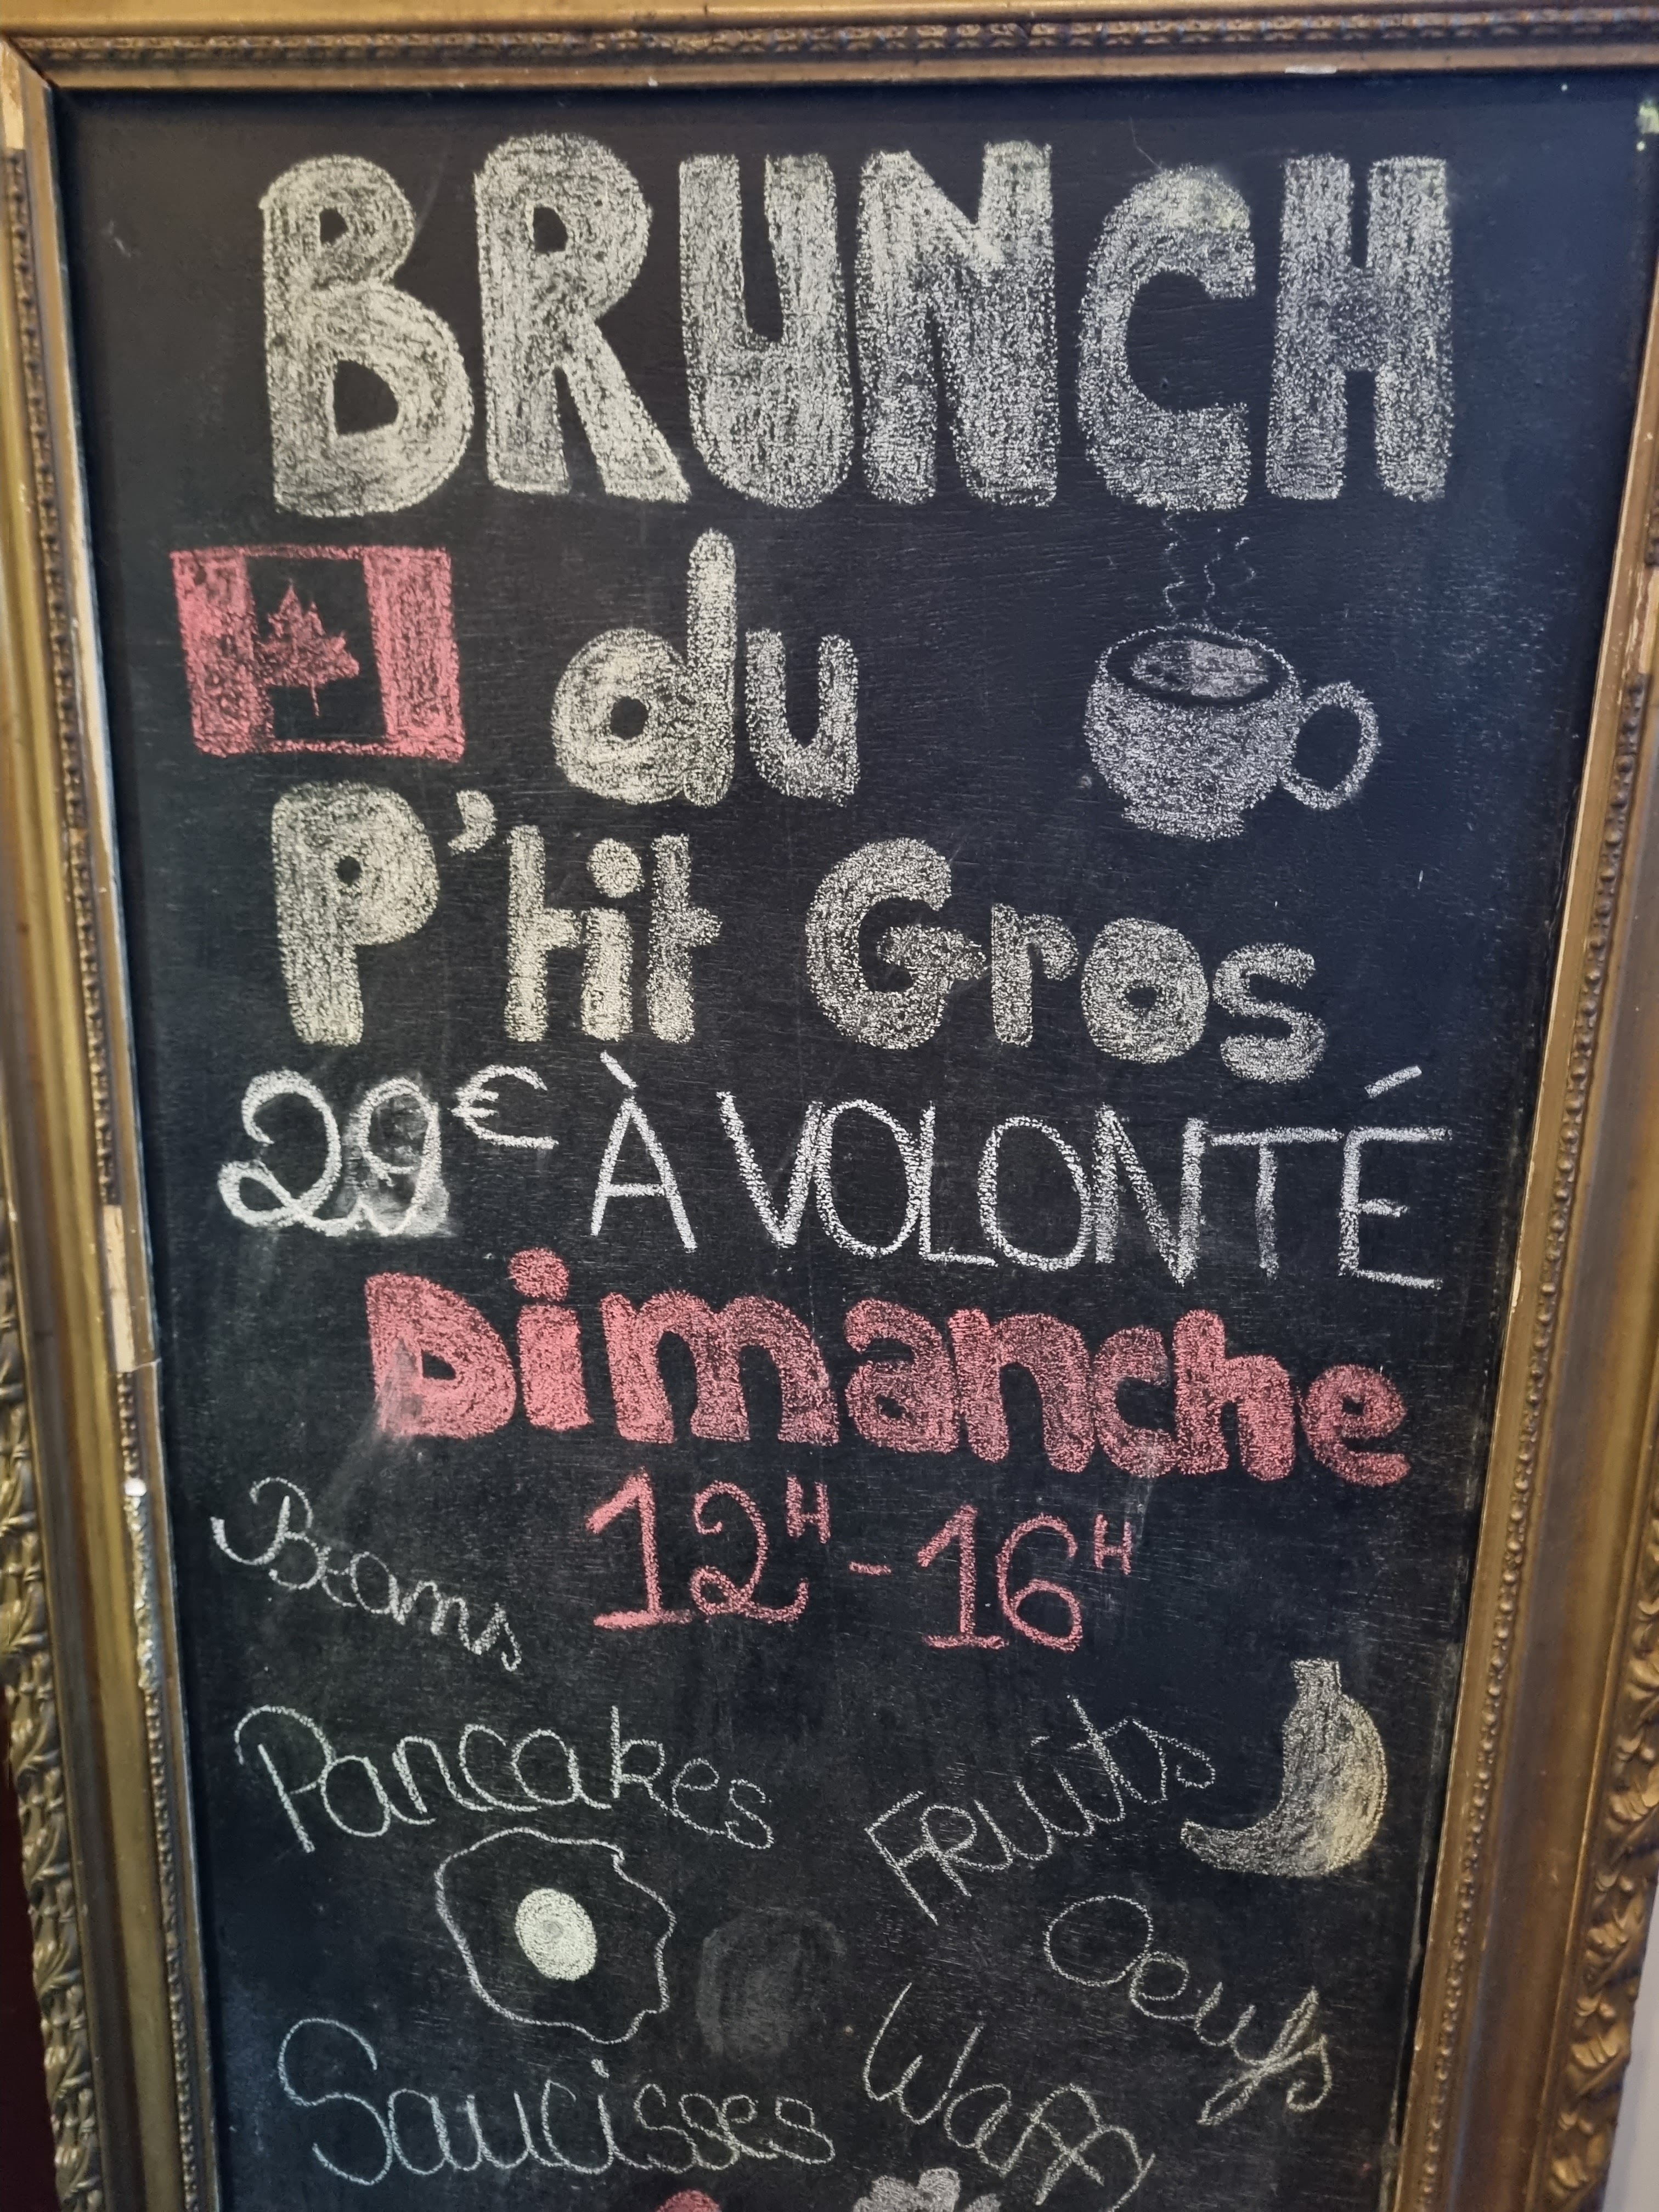 BRUNCH
du
P'tit Gros
29€ À VOLONTÉ
Dimanche
12H - 16H
Beans
Pancakes
Fruits
Oeufs
Saucisses